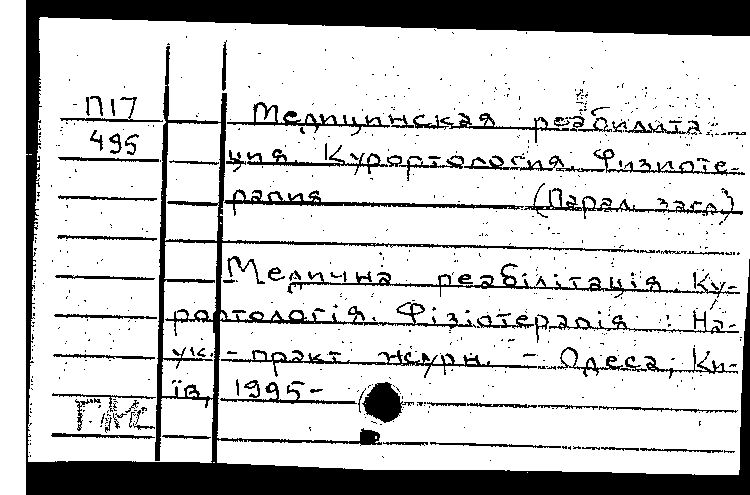 П17
495
Медицинская реабилита-
ция. Курортология. Физиоте-
рапия (Парал. загл)
Медична реабілітація. Ку-
рортологія. Фізіотерапія : На-
ук.-практ журн. - Одеса; Ки-
їв, 1995-